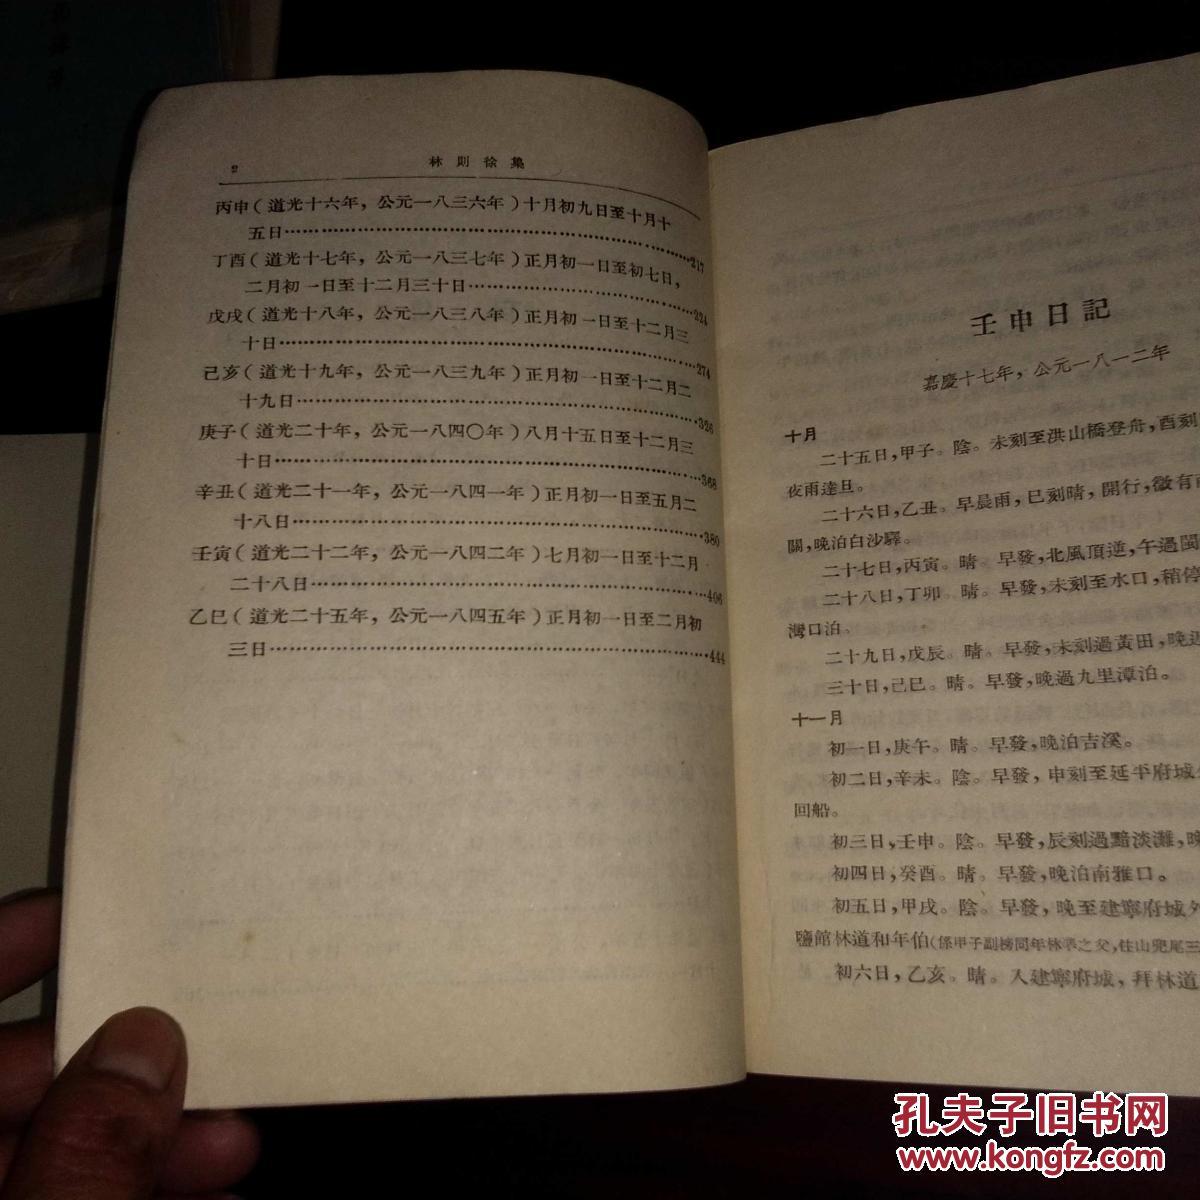 2
林則徐集
丙申(道光十六年，公元一八三六年)十月初九日至十月十
五日……217
丁酉(道光十七年，公元一八三七年)正月初一日至初七日，
二月初一日至十二月三十日……224
戊戌(道光十八年，公元一八三八年)正月初一日至十二月三
十日……274
己亥(道光十九年，公元一八三九年)正月初一日至十二月二
十九日……326
庚子(道光二十年，公元一八四〇年)八月十五日至十二月三
十日……368
辛丑(道光二十一年，公元一八四一年)正月初一日至五月二
十八日……380
壬寅(道光二十二年，公元一八四二年)七月初一日至十二月
二十八日……406
乙巳(道光二十五年，公元一八四五年)正月初一日至二月初
三日……444
壬申日記
嘉慶十七年，公元一八一二年
十月
二十五日，甲子。陰。未刻至洪山橋登舟，酉刻
夜雨達旦。
二十六日，乙丑。早晨雨，巳刻晴，開行，微有
關，晚泊白沙驛。
二十七日，丙寅。晴。早發，北風頂逆，午過閩
二十八日，丁卯。晴。早發，未刻至水口，稍停
灣口泊。
二十九日，戊辰。晴。早發，未刻過黃田，晚
三十日，己巳。晴。早發，晚過九里潭泊。
十一月
初一日，庚午。晴。早發，晚泊吉溪。
初二日，辛未。陰。早發，申刻至延平府城
回船。
初三日，壬申。陰。早發，辰刻過黯淡灘，晚
初四日，癸酉。晴。早發，晚泊南雅口。
初五日，甲戌。陰。早發，晚至建寧府城外
鹽館林道和年伯(係甲子副榜同年林之父，住山兜尾三
初六日，乙亥。晴。入建寧府城，拜林道
孔夫子旧书网
www.kongfz.com